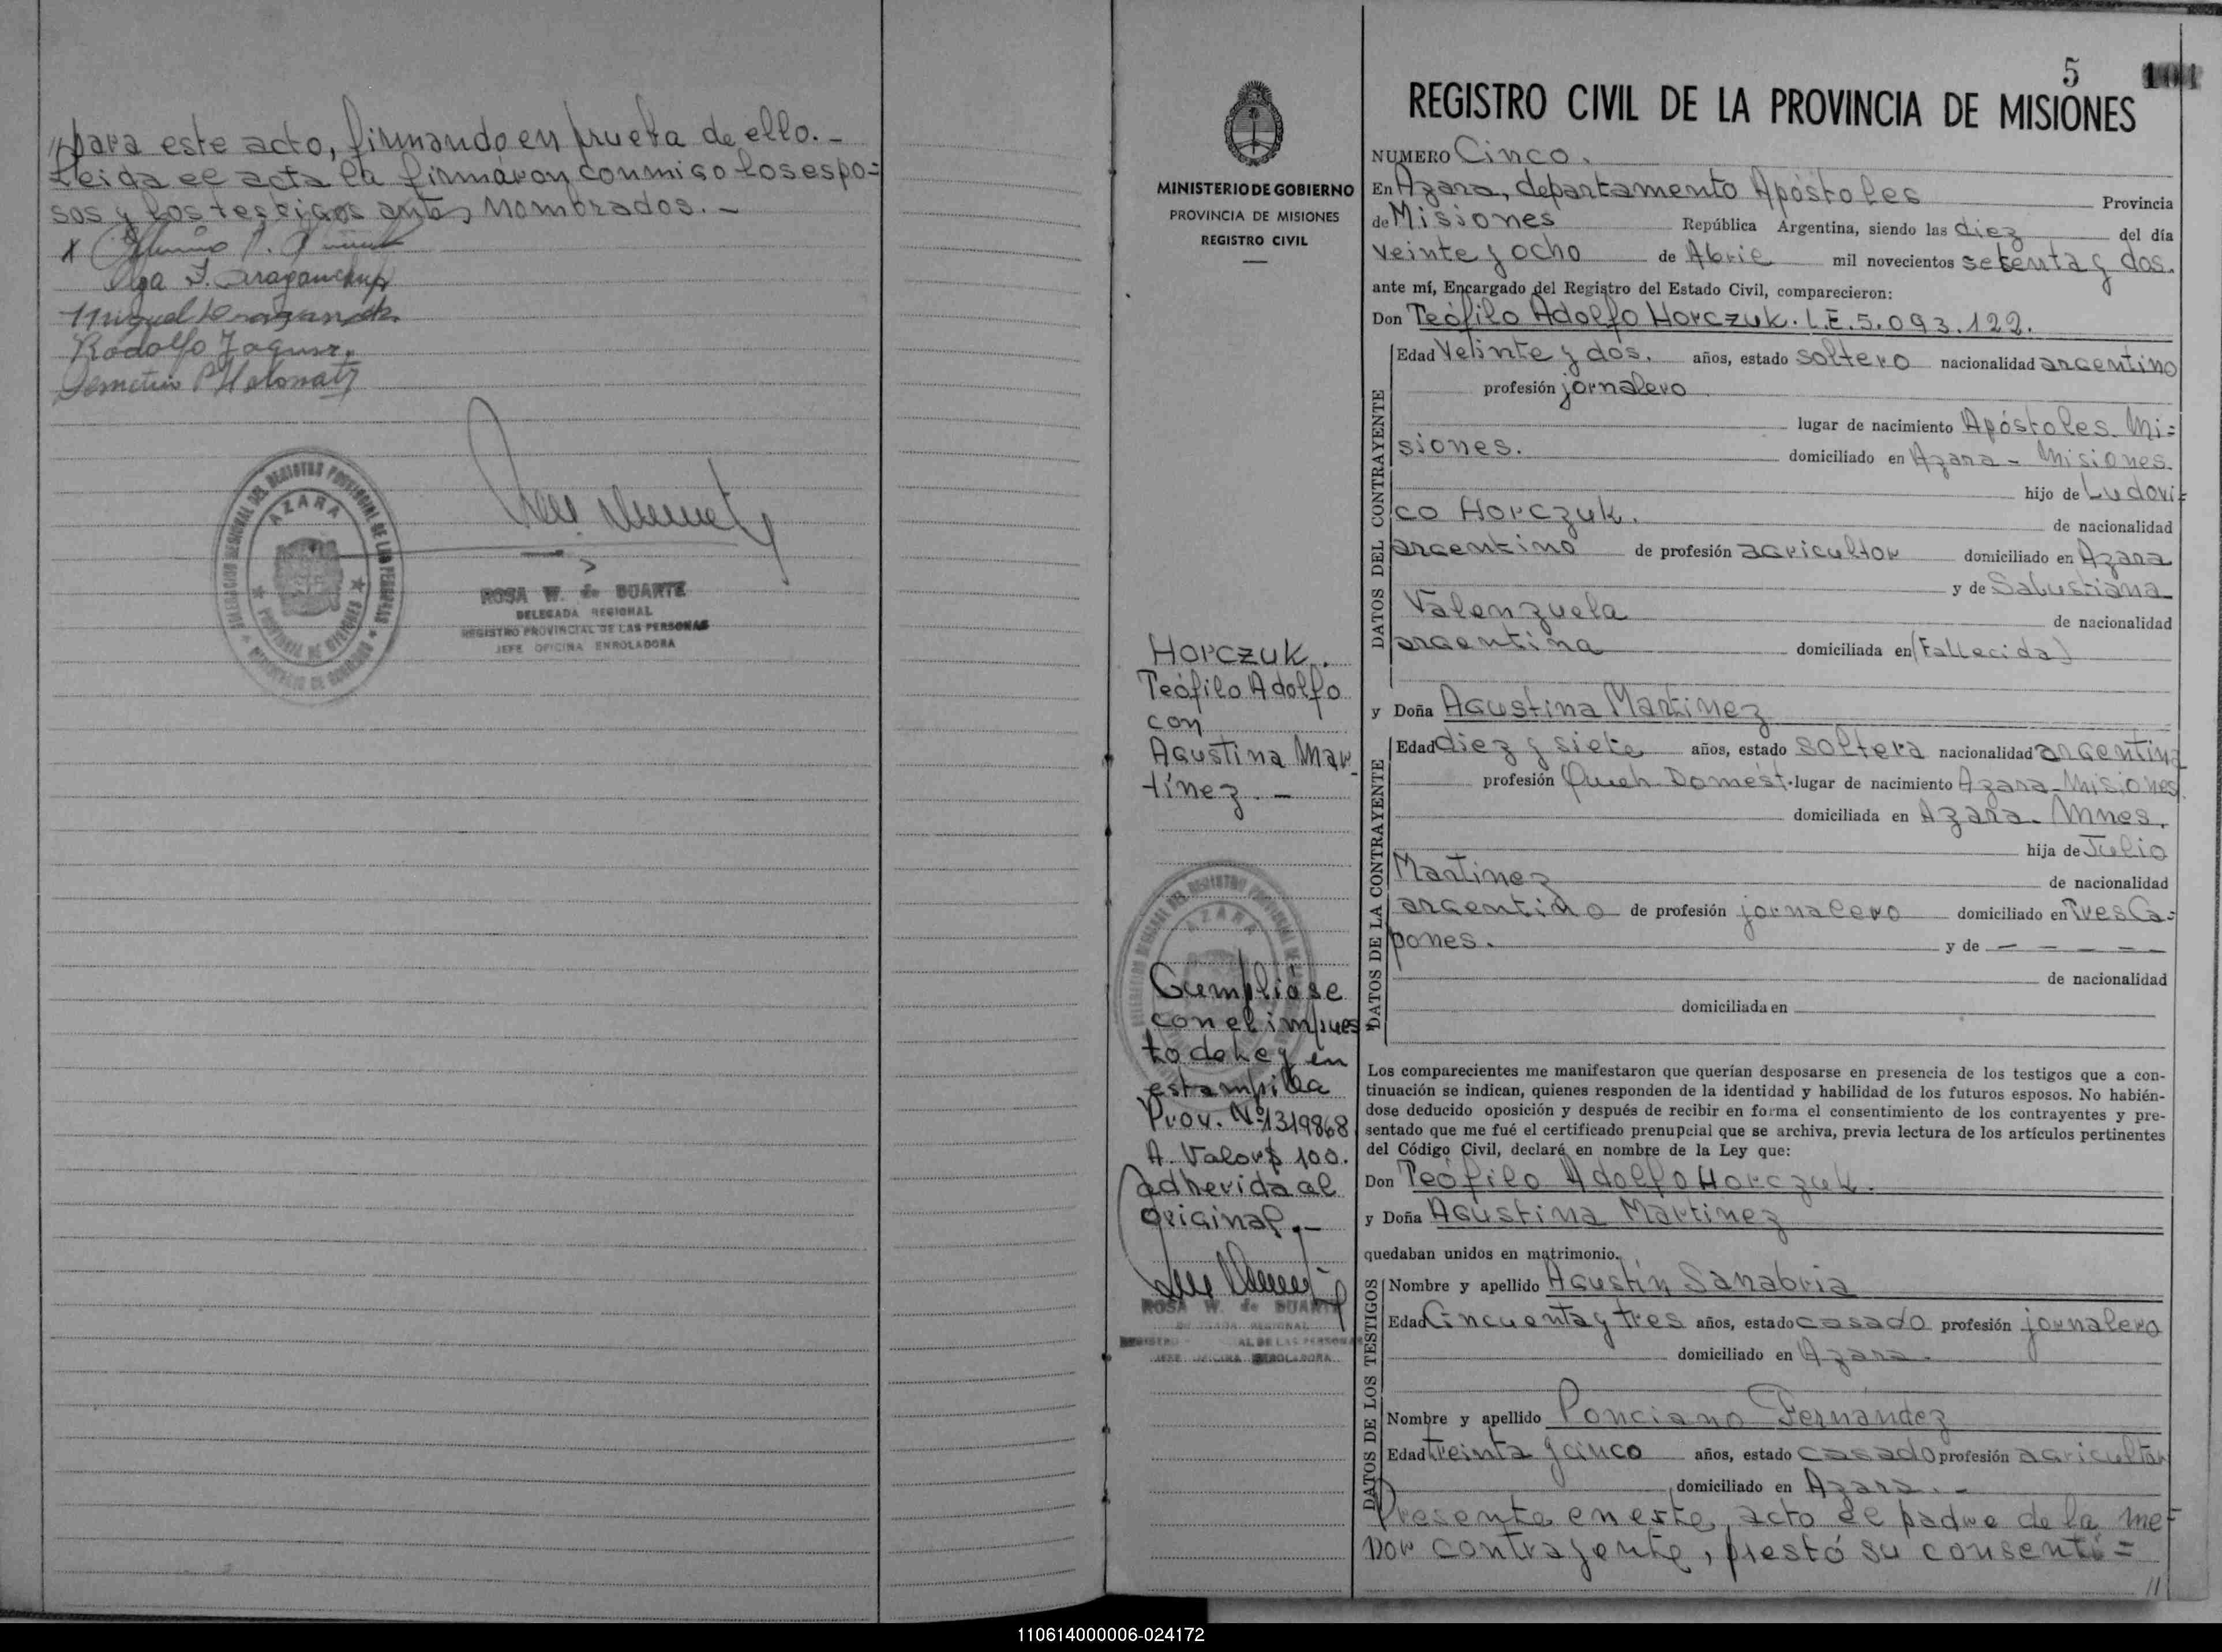 "para este acto, firmando en prueba de ello.-
Leida el acta la firmáron conmigo los espo=
sos y los testigos antes nombrados.-
Olga I.
Miguel
Rodolfo
Demetrio P.
DELEGACION REGIONAL DEL REGISTRO PROVINCIAL DE LAS PERSONAS
AZARA
PROVINCIA DE MISIONES
MINISTERIO DE GOBIERNO
ROSA W. de DUARTE
DELEGADA REGIONAL
REGISTRO PROVINCIAL DE LAS PERSONAS
JEFE OFICINA ENROLADORA
MINISTERIO DE GOBIERNO
PROVINCIA DE MISIONES
REGISTRO CIVIL
Horczuk.
Teófilo Adolfo
con
Agustina Mar-
tínez.-
AZARA
Cumpliose
con el impues
to de Ley en
estampilla
Prov. Nº 1319868
A. Valor $ 100.
adherida al
original.-
ROSA W. de DUARTE
JEFE OFICINA ENROLADORA
5
REGISTRO CIVIL DE LA PROVINCIA DE MISIONES
NUMERO Cinco.
En Azara, departamento Apóstoles Provincia
de Misiones República Argentina, siendo las diez del día
veinte y ocho de Abril mil novecientos setenta y dos.
ante mí, Encargado del Registro del Estado Civil, comparecieron:
Don Teófilo Adolfo Horczuk. L.E. 5.093.122.
DATOS DEL CONTRAYENTE
Edad Veinte y dos. años, estado soltero nacionalidad argentino
profesión jornalero
lugar de nacimiento Apóstoles. Mi=
siones. domiciliado en Azara - Misiones.
hijo de Ludovi=
co Horczuk. de nacionalidad
argentino de profesión agricultor domiciliado en Azara
y de Salustiana
Valenzuela de nacionalidad
argentina domiciliada en (Fallecida)
y Doña Agustina Martinez
DATOS DE LA CONTRAYENTE
Edad diez y siete años, estado soltera nacionalidad argentina
profesión Queh. Domést. lugar de nacimiento Azara-Misiones.
domiciliada en Azara. Mnes.
hija de Julio
Martinez de nacionalidad
argentino de profesión jornalero domiciliado en Tres Ca=
pones. y de - - - - -
de nacionalidad
domiciliada en
Los comparecientes me manifestaron que querían desposarse en presencia de los testigos que a con-
tinuación se indican, quienes responden de la identidad y habilidad de los futuros esposos. No habién-
dose deducido oposición y después de recibir en forma el consentimiento de los contrayentes y pre-
sentado que me fué el certificado prenupcial que se archiva, previa lectura de los artículos pertinentes
del Código Civil, declaré en nombre de la Ley que:
Don Teófilo Adolfo Horczuk.
y Doña Agustina Martinez
quedaban unidos en matrimonio.
DATOS DE LOS TESTIGOS
Nombre y apellido Agustín Sanabria
Edad Cincuenta y tres años, estado casado profesión jornalero
domiciliado en Azara.
Nombre y apellido Ponciano Fernández
Edad treinta y cinco años, estado casado profesión agricultor
domiciliado en Azara.-
Presente en este acto el padre de la me=
nor contrayente, prestó su consenti=
//
110614000006-024172